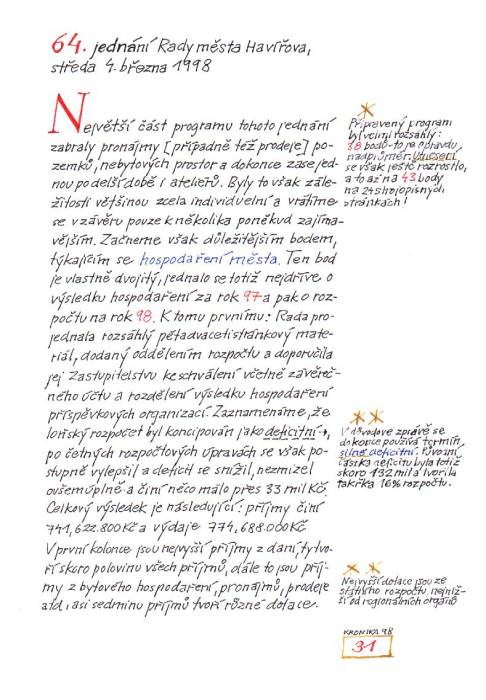 64. jednání Rady města Havířova,
středa 4. března 1998
Největší část programu tohoto jednání
zabraly pronájmy [případně též prodeje] po-
zemků, nebytových prostor a dokonce zase jed-
nou po delší době i ateliérů. Byly to však zále-
žitosti většinou zcela individuelní a vrátíme
se v závěru pouze k několika poněkud zajíma-
vějším. Začneme však důležitějším bodem,
týkajícím se hospodaření města. Ten bod
je vlastně dvojitý, jednalo se totiž nejdříve o
výsledku hospodaření za rok 97 a pak o roz-
počtu na rok 98. K tomu prvnímu: Rada pro-
jednala rozsáhlý pětadvacetistránkový mate-
riál, dodaný oddělením rozpočtu a doporučila
jej Zastupitelstvu ke schválení včetně závěreč-
ného účtu a rozdělení výsledku hospodaření
příspěvkových organizací. Zaznamenáme, že
loňský rozpočet byl koncipován jako deficitní→,
po četných rozpočtových úpravách se však po-
stupně vylepšil a deficit se snížil, nezmizel
ovšem úplně a činí něco málo přes 33 mil Kč.
Celkový výsledek je následující: příjmy činí
741,622.800 Kč a výdaje 774,688.000 Kč
V první kolonce jsou nejvyšší příjmy z daní, ty tvo-
ří skoro polovinu všech příjmů, dále to jsou příj-
my z bytového hospodaření, pronájmů, prodeje
atd. i asi sedminu příjmů tvoří různé dotace.
*
Připravený program
byl velmi rozsáhlý:
38 bodů - to je opravdu
nadprůměr.
se však ještě rozrostlo,
a to až na 43 body
na 24 strojopisných
stránkách!
**
V důvodové zprávě se
dokonce používá termín
silně deficitní. Původní
částka deficitu byla totiž
skoro 132 mil a tvořila
takřka 16% rozpočtu.
**
Nejvyšší dotace jsou ze
státního rozpočtu, nejniž-
ší od regionálních orgánů
KRONIKA 98
31